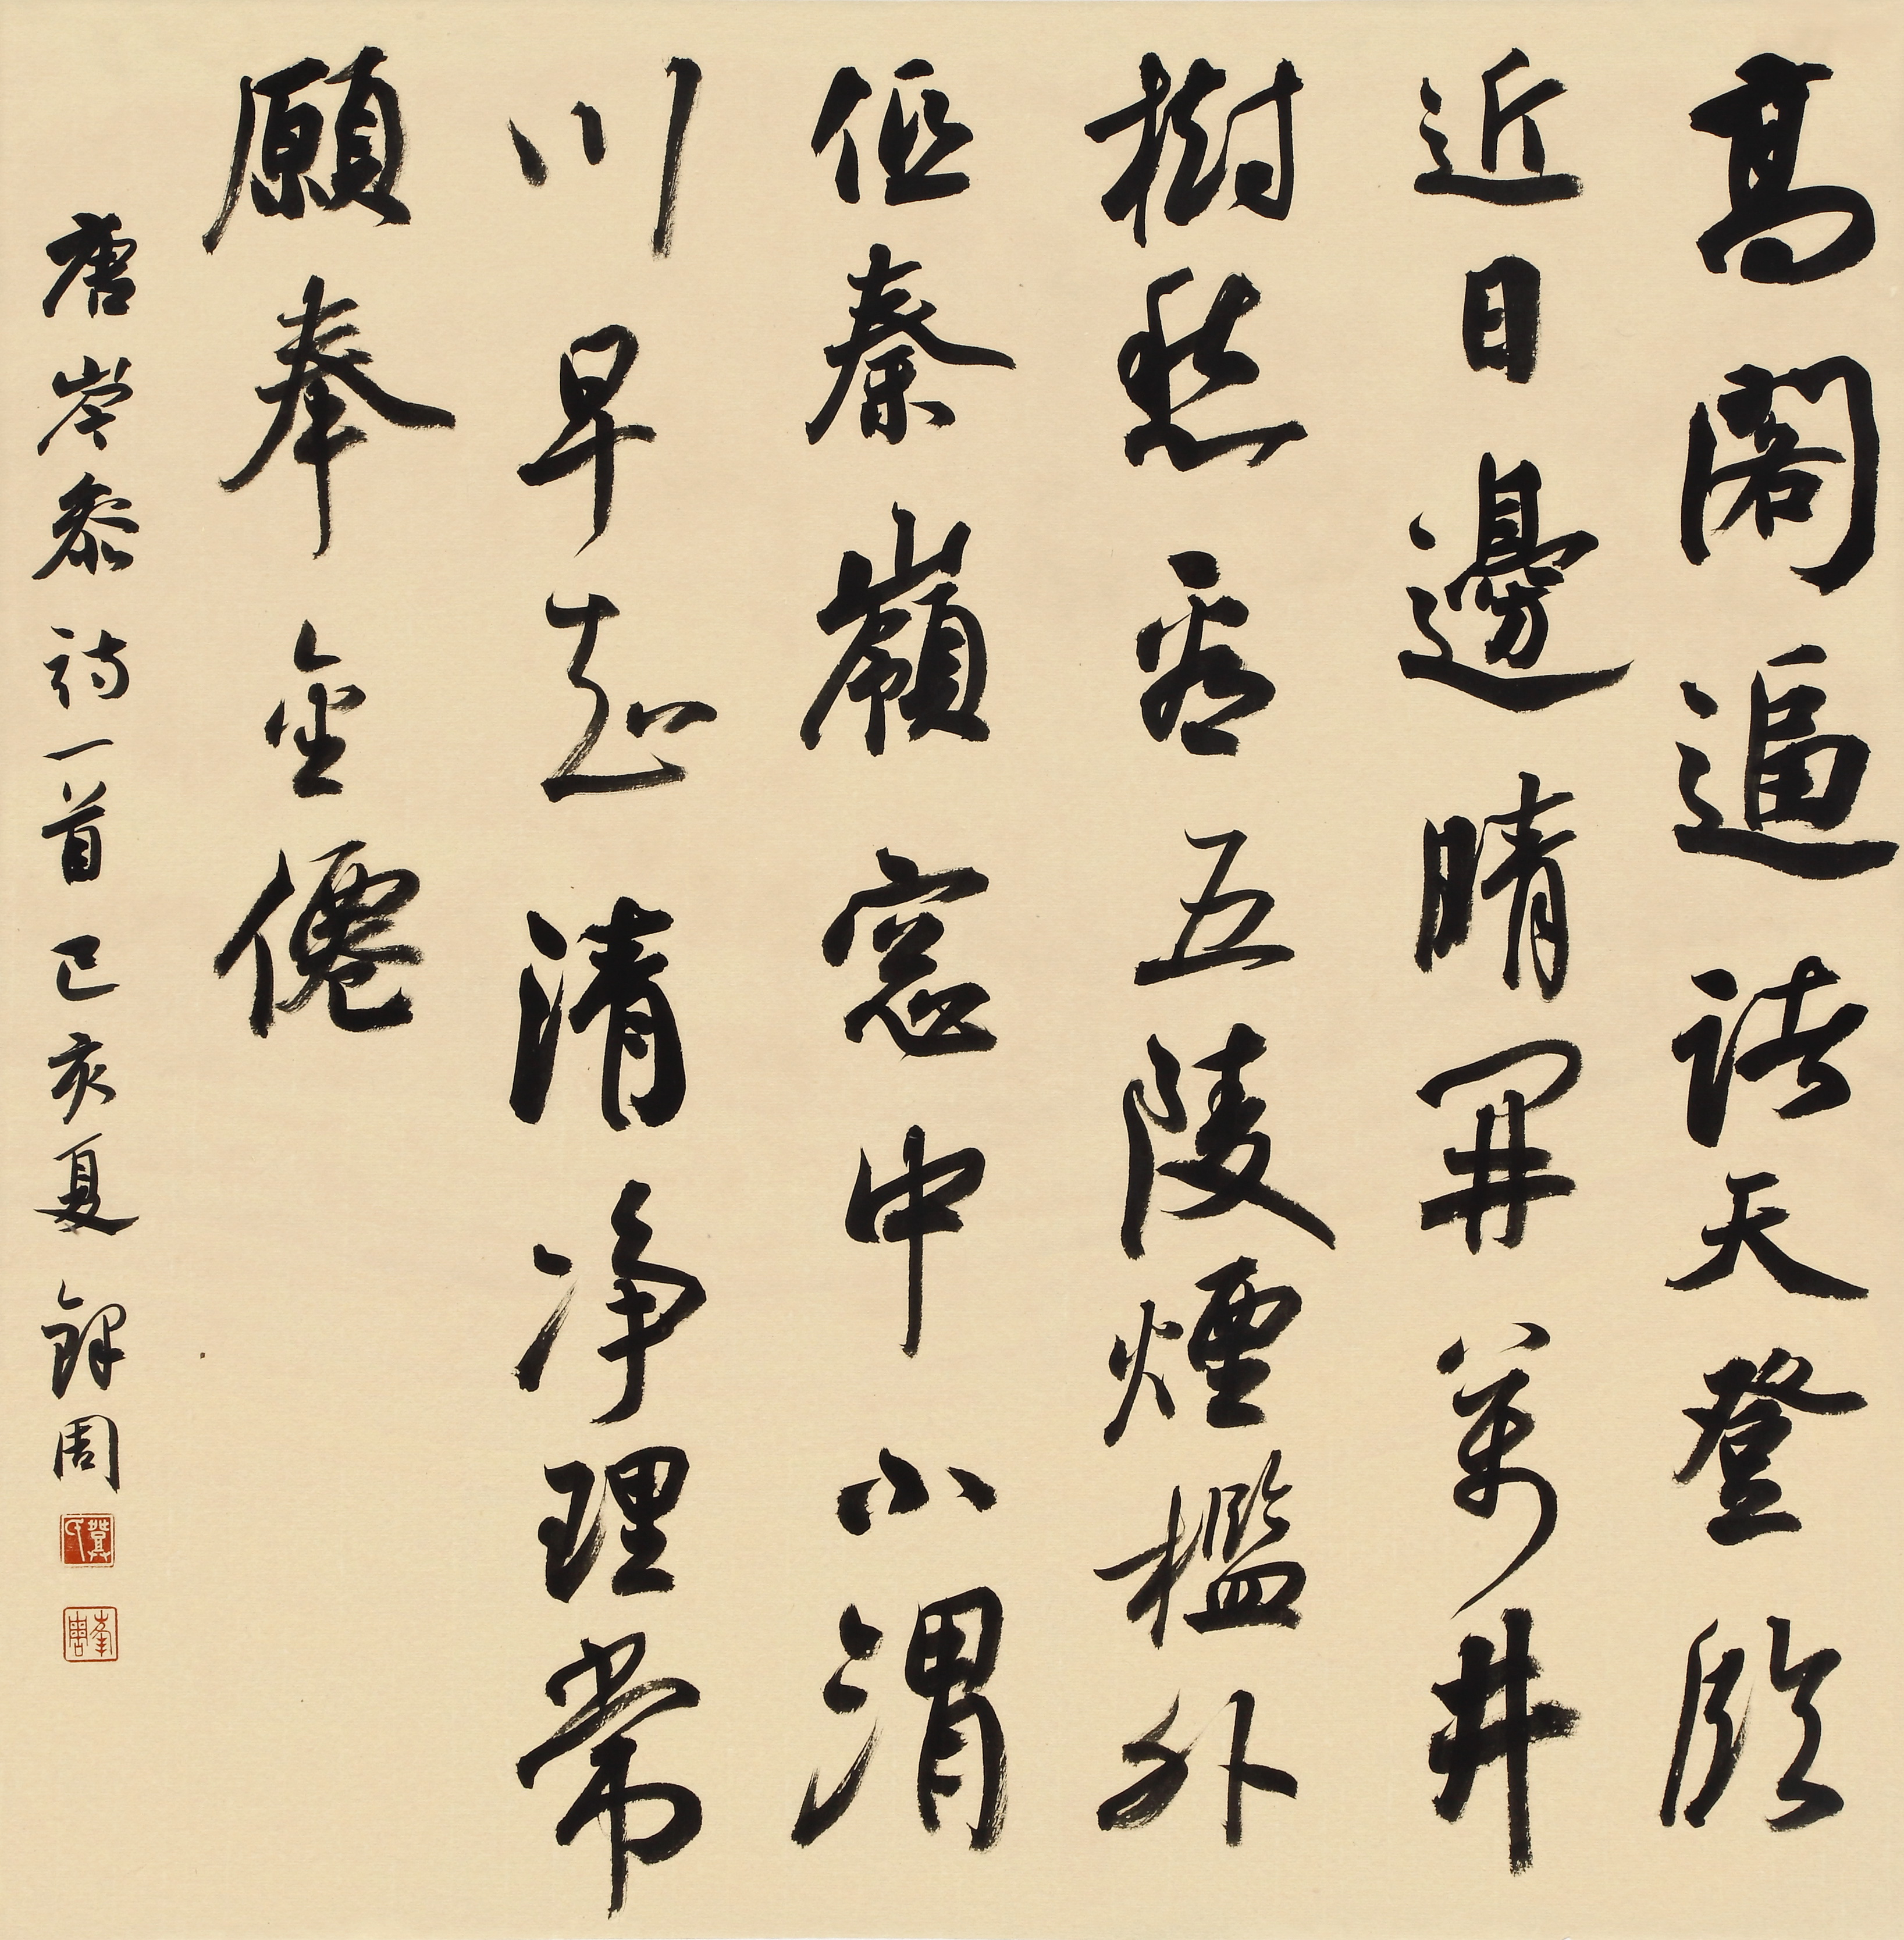 高閣逼諸天登臨
近日邊晴開萬井
樹愁看五陵煙檻外
低秦嶺窓中小渭
川早知清净理常
願奉金僊
唐岑參詩一首己亥夏 鐸周